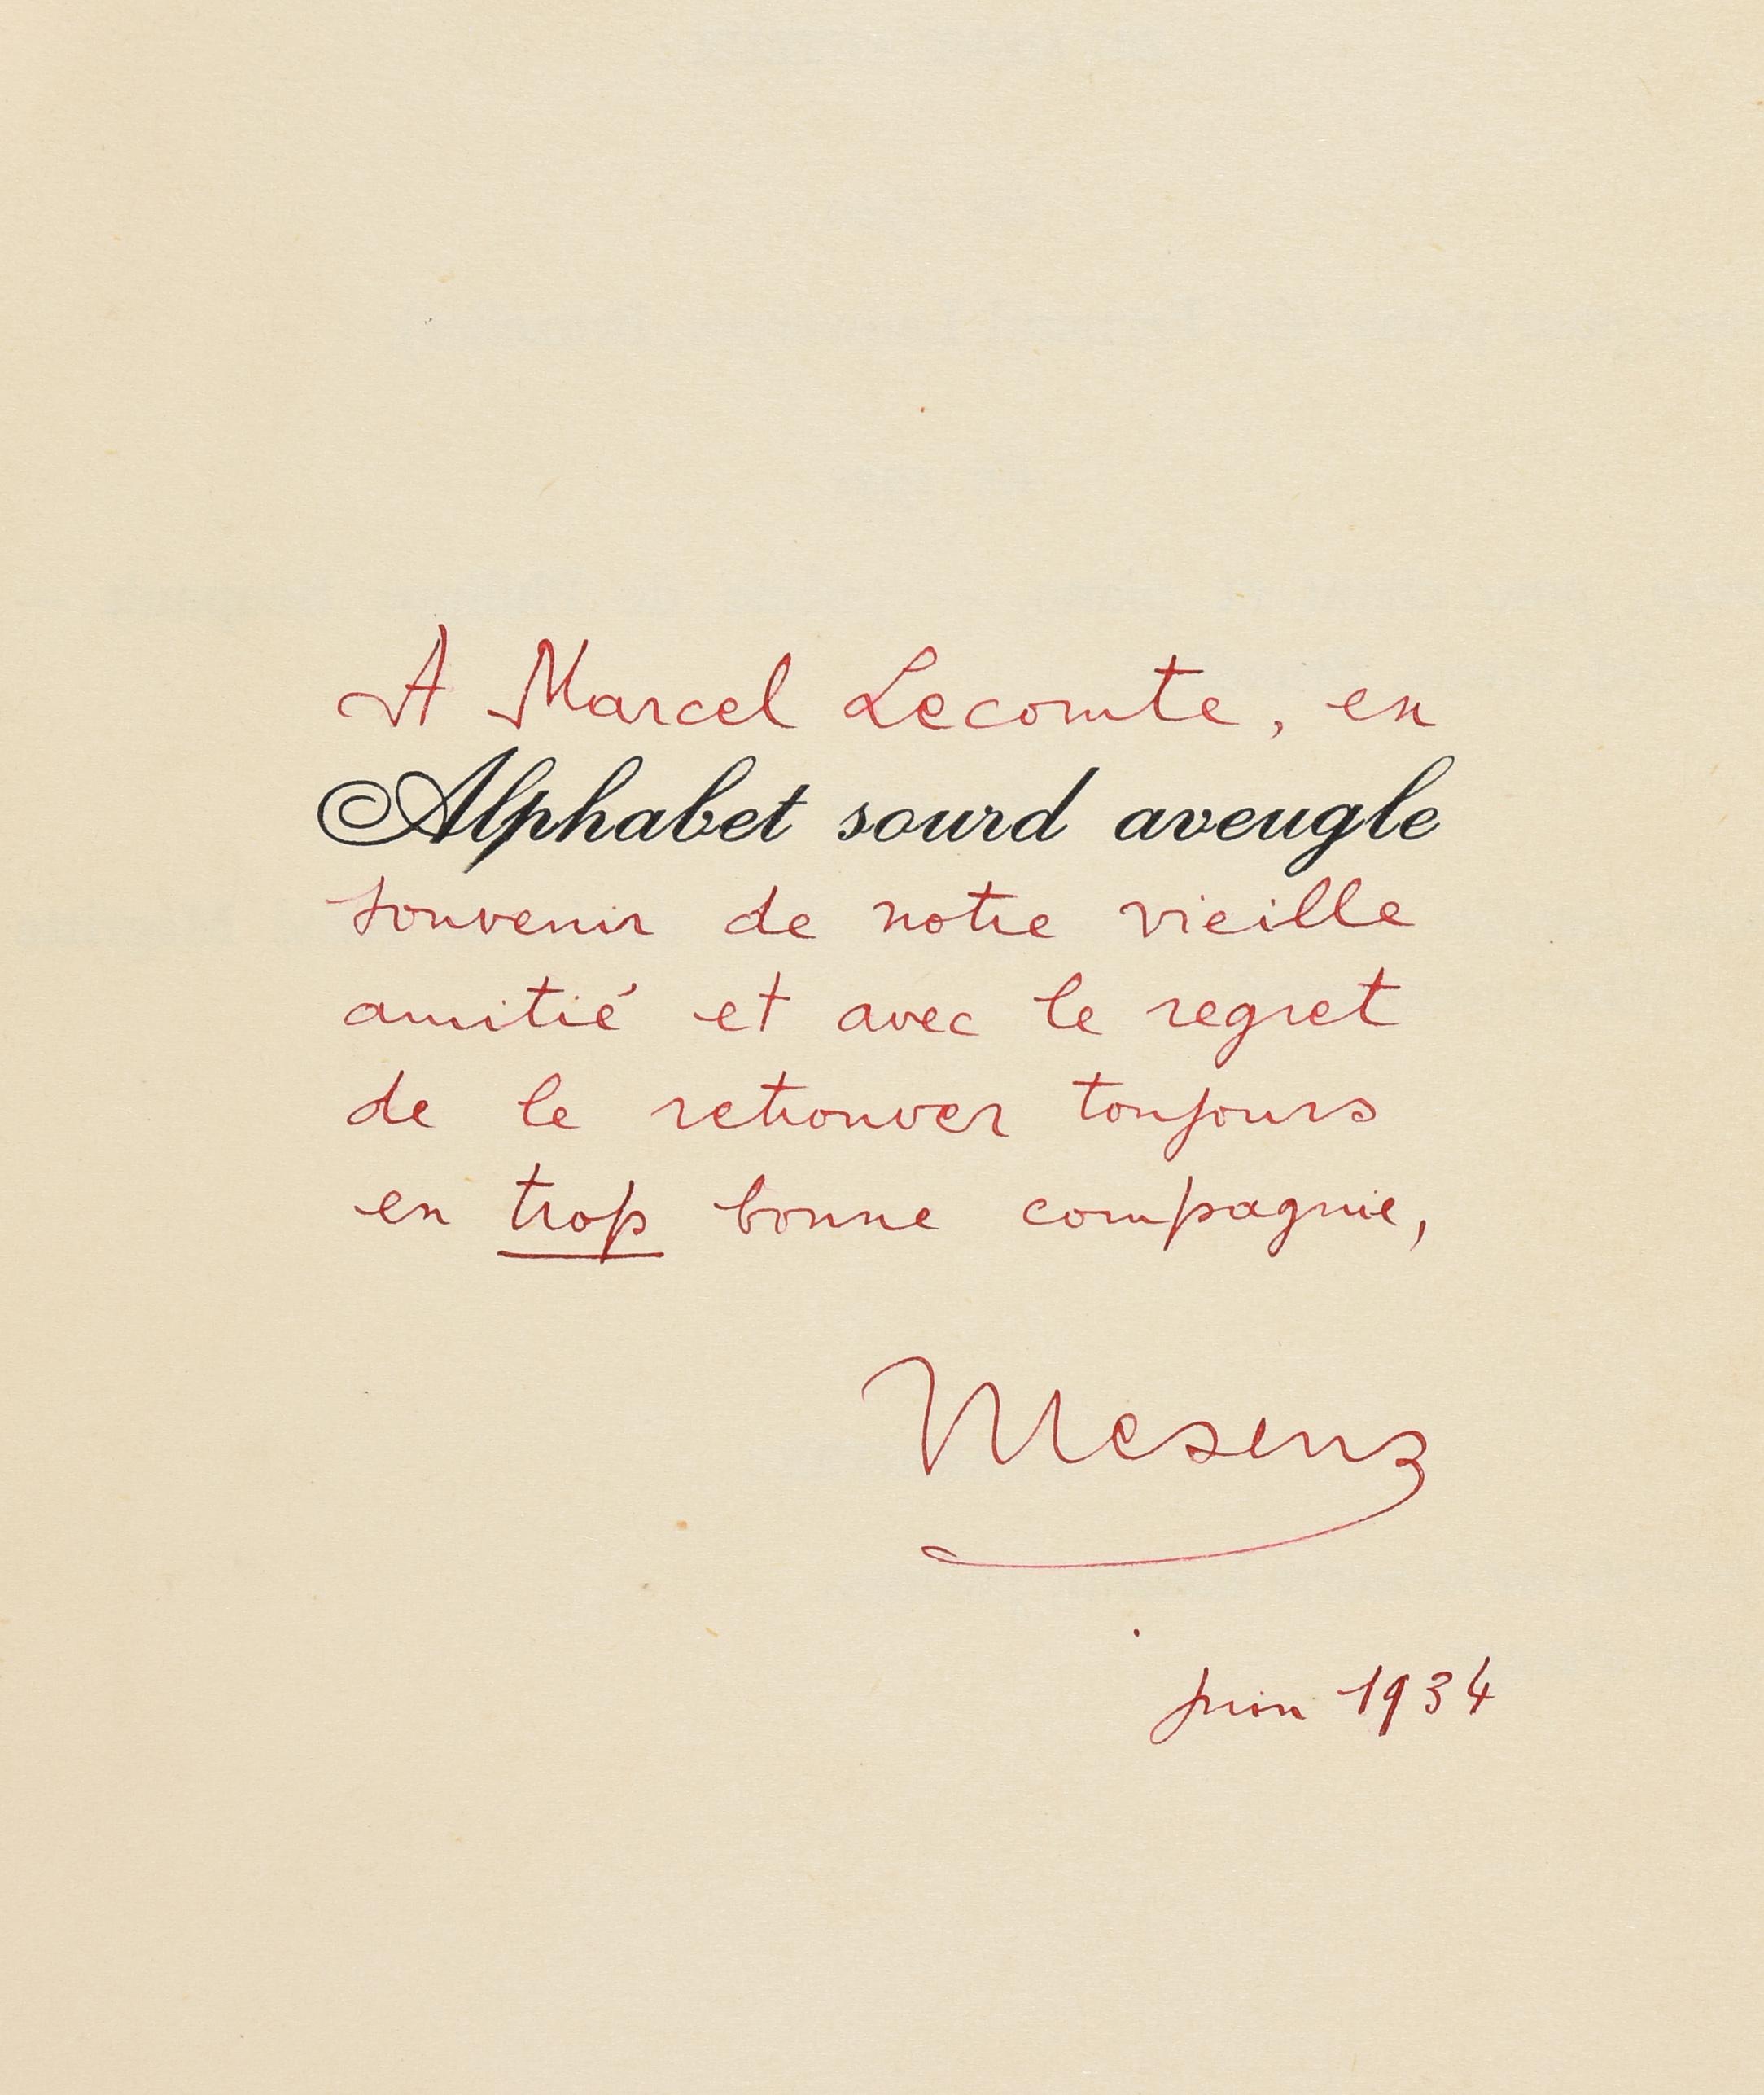 A Marcel Lecomte, en
Alphabet sourd aveugle
souvenir de notre vieille
amitié et avec le regret
de le retrouver toujours
en trop bonne compagnie,
Mesens
juin 1934